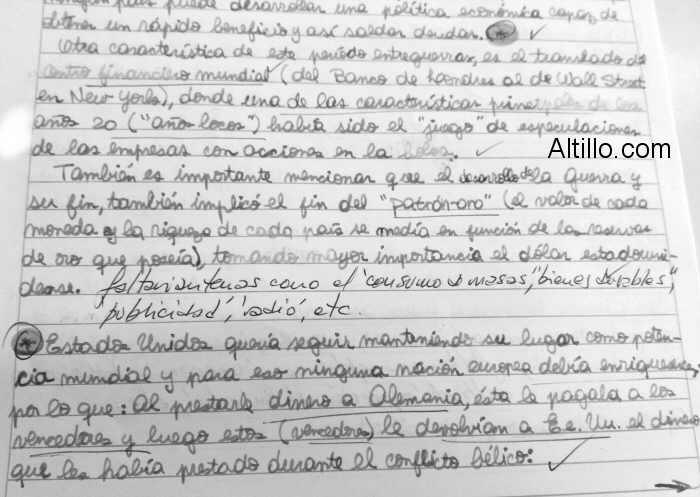 ningún país puede desarrollar una política económica capaz de
obtener un rápido beneficio y así saldar deudas. ✓
Otra característica de este período entreguerras, es el translado de
centro financiero mundial (del Banco de Londres al de Wall Street
en New York), donde una de las características principales de los
años 20 ("años locos") había sido el "juego" de especulaciones
de las empresas con acciones en la bolsa. ✓
Altillo.com
También es importante mencionar que el desarrollo de la guerra y
su fin, también implicó el fin del "patrón-oro" (el valor de cada
moneda y la riqueza de cada país se medía en función de las reservas
de oro que poseía), tomando mayor importancia el dólar estadouni-
dense. faltarían temas como el 'consumo d masas', 'bienes durables',
'publicidad', 'radio', etc.
Estados Unidos quería seguir manteniendo su lugar como poten-
cia mundial y para eso ninguna nación europea debía enriquecerse,
por lo que: Al prestarle dinero a Alemania, ésta le pagaba a los
vencedores y luego estos (vencedores) le devolvían a Ee. Uu. el dinero
que les había prestado durante el conflicto bélico: ✓
→